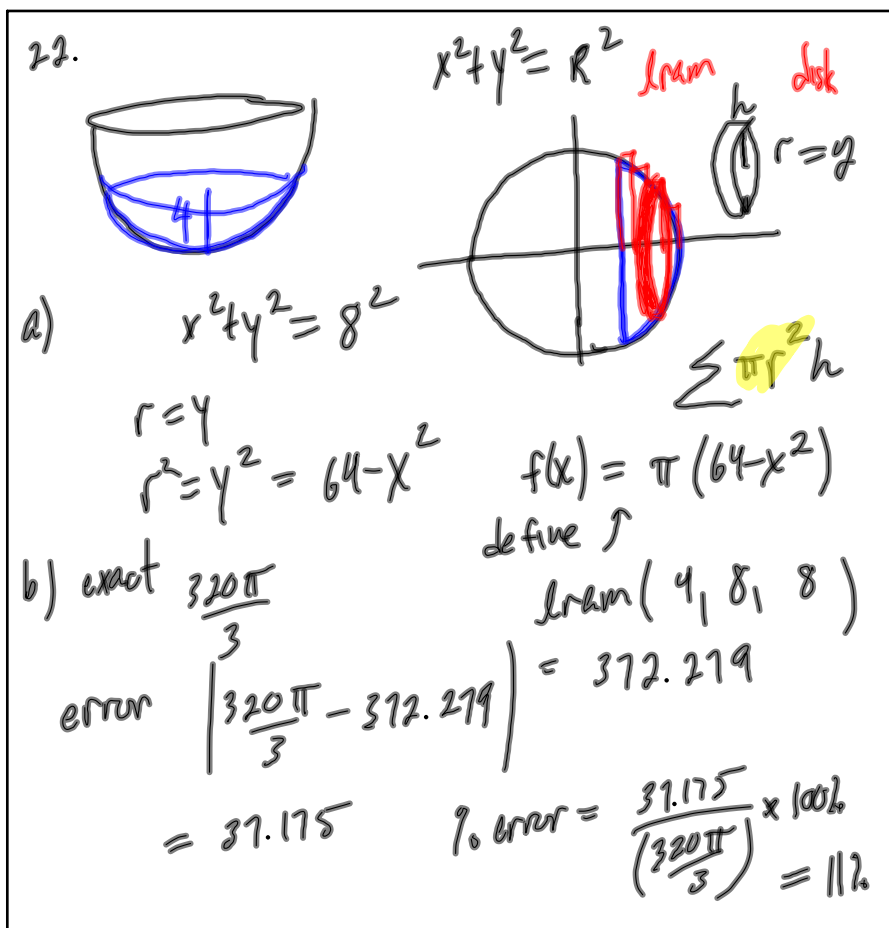 22.
x²+y² = R² lram disk
h
r = y
4
a) x²+y² = 8²
∑ πr²h
r = y
r² = y² = 64-x² f(x) = π(64-x²)
define ↑
b) exact 320π/3 lram(4, 8, 8)
= 372.279
error |320π/3 - 372.279|
= 37.175 % error = 37.175/(320π/3) × 100%
= 11%